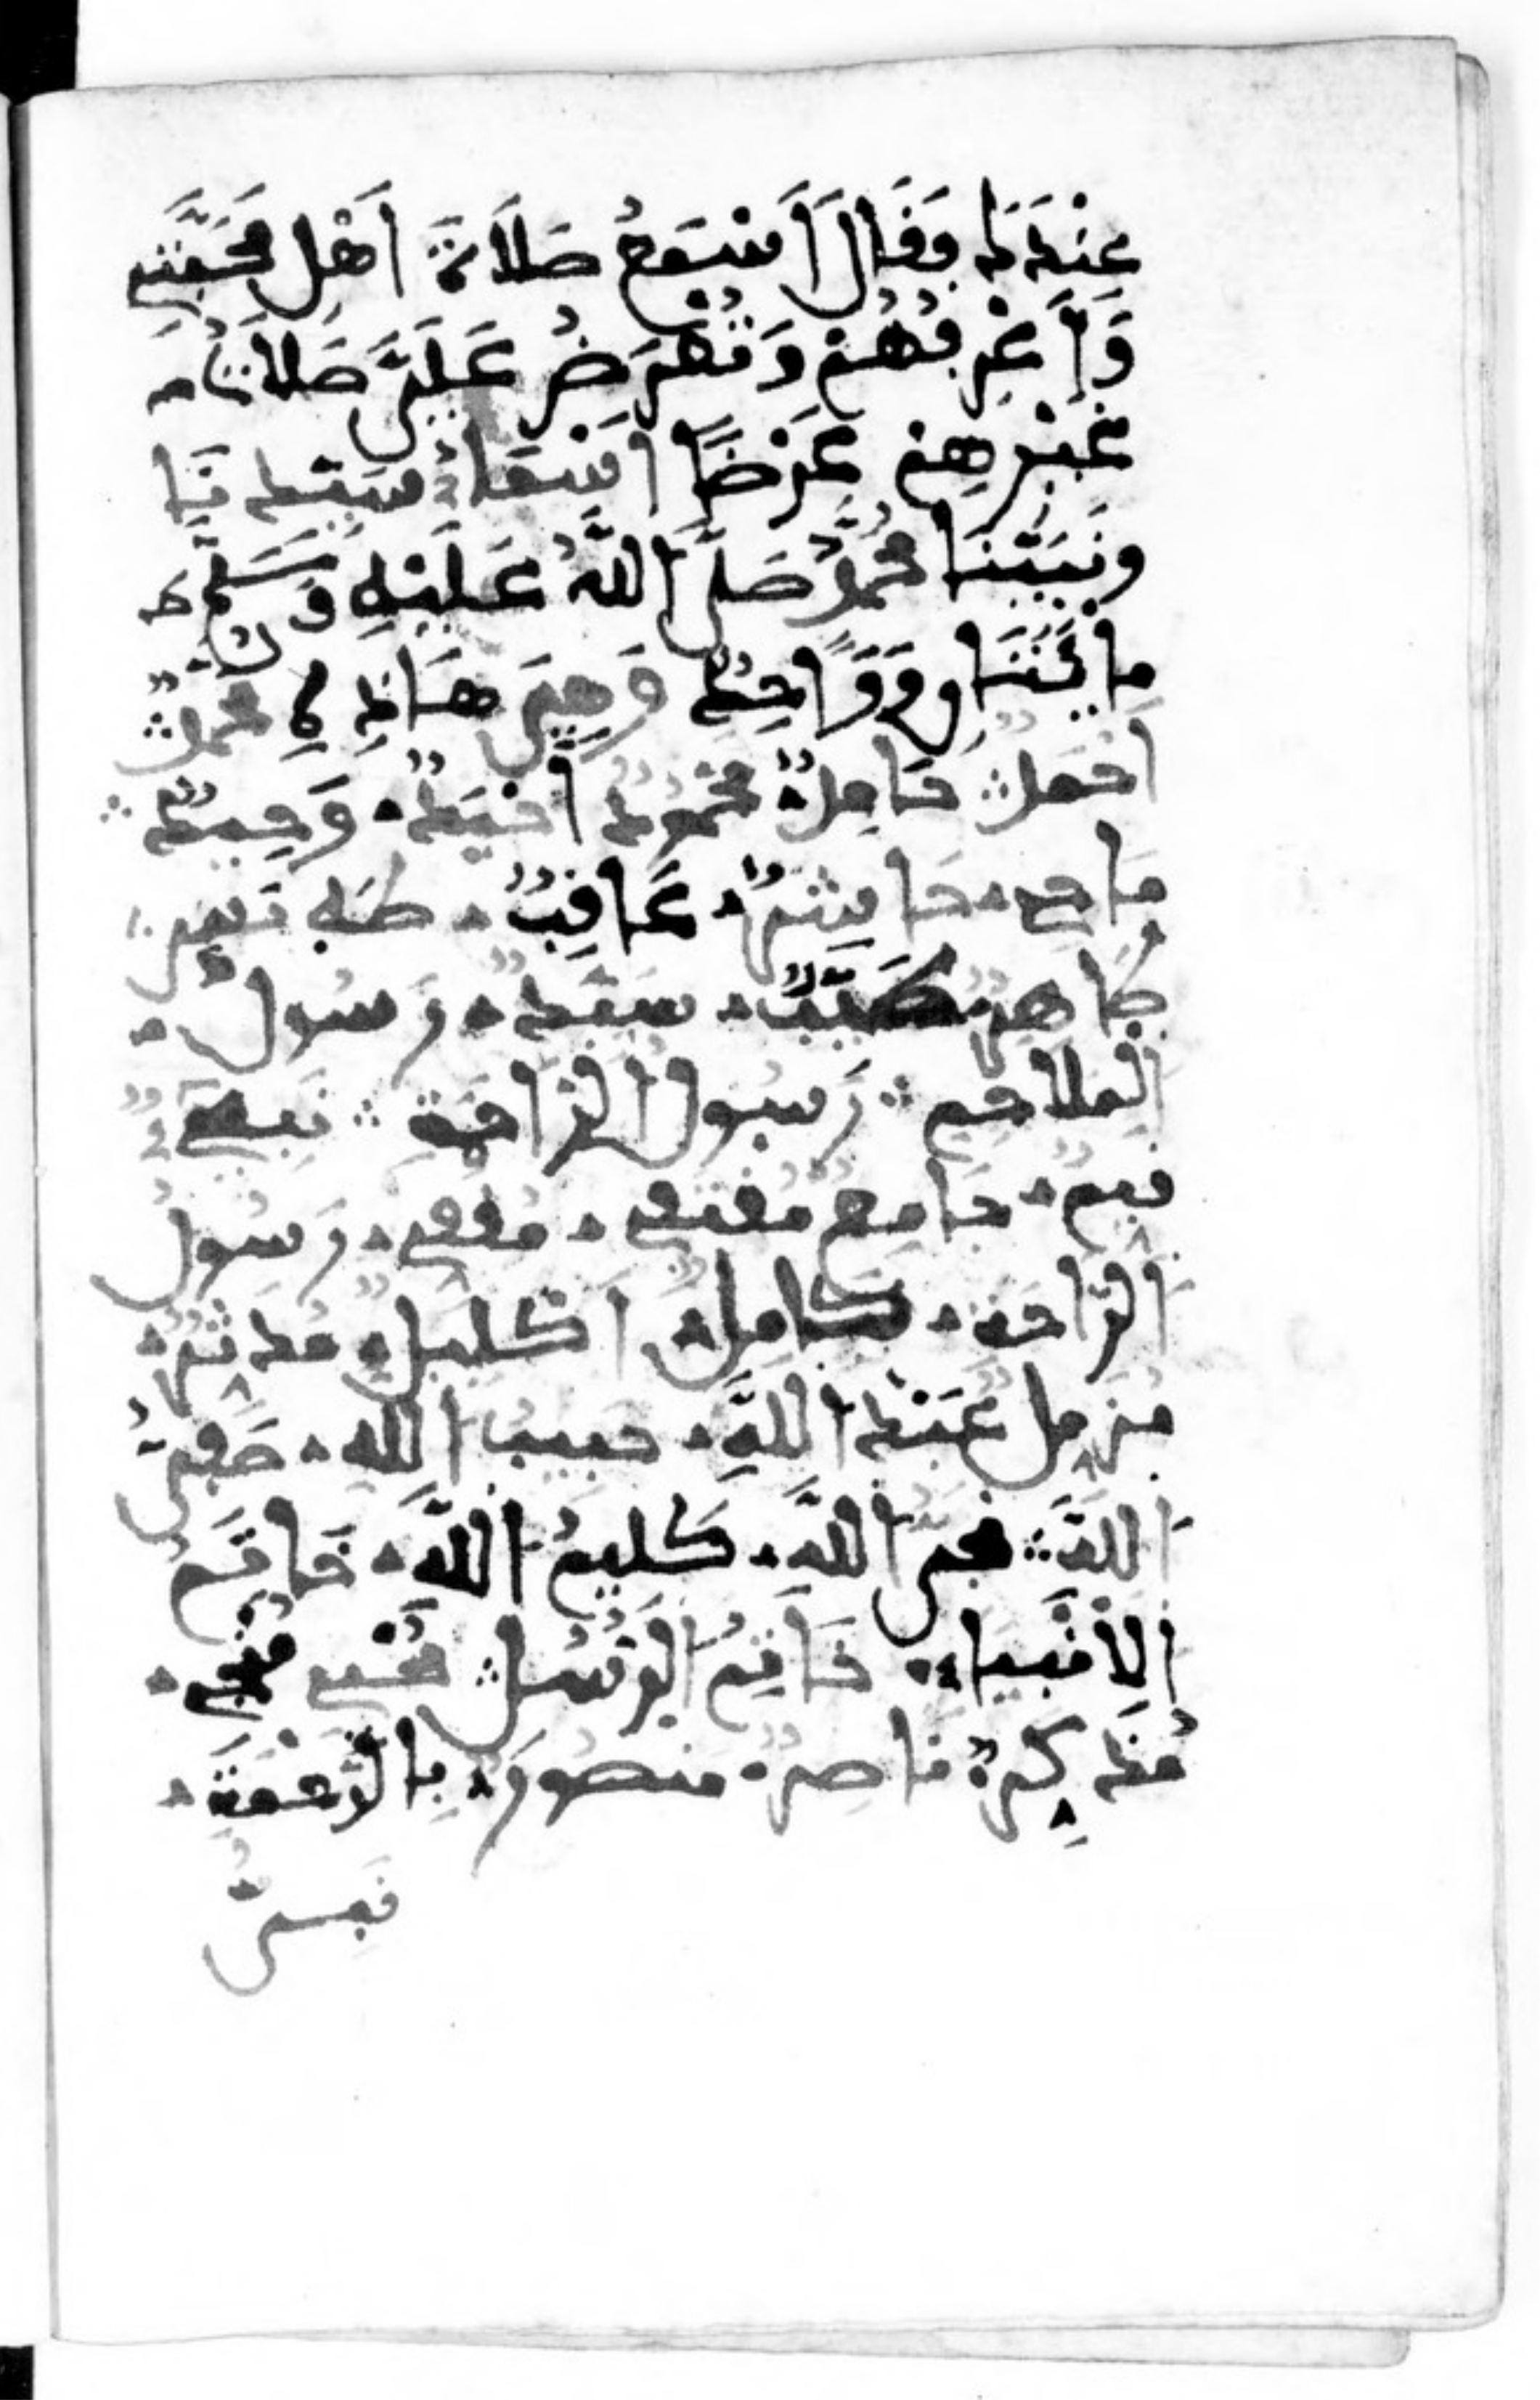 عِنْدَكَ فَقَالَ أَسْمَعُ صَلَاةَ أَهْلِ مَحَبَّتِي
وَأَعْرِفُهُمْ وَتُعْرَضُ عَلَيَّ صَلَاةُ
غَيْرِهِمْ عَرْضًا اسْمَاءُ سَيِّدِنَا
وَنَبِيِّنَا مُحَمَّدٍ صَلَّى اللَّهُ عَلَيْهِ وَسَلَّمَ
مِائَتَانِ وَوَاحِدٌ وَهِيَ هَاذِهِ مُحَمَّدٌ
أَحْمَدُ حَامِدٌ مَحْمُودٌ أَحْيَدُ وَحِيدٌ
مَاحٍ حَاشِرٌ عَاقِبٌ طَهَ يَس
طَاهِرٌ مُطَهَّرٌ طَيِّبٌ سَيِّدٌ رَسُولٌ
الْمَلَاحِمِ رَسُولُ الرَّاحَةِ نَبِيٌّ
قَيِّمٌ جَامِعٌ مُقْتَفٍ مُقَفٍّ رَسُولُ
الرَّاحَةِ كَامِلٌ إِكْلِيلٌ مُدَّثِّرٌ
مُزَّمِّلٌ عَبْدُ اللَّهِ حَبِيبُ اللَّهِ صَفِيُّ
اللَّهِ نَجِيُّ اللَّهِ كَلِيمُ اللَّهِ خَاتَمُ
الْأَنْبِيَاءِ خَاتِمُ الرُّسُلِ مُحْيٍ مُنْجٍ
مُذَكِّرٌ نَاصِرٌ مَنْصُورٌ بِالرَّحْمَةِ